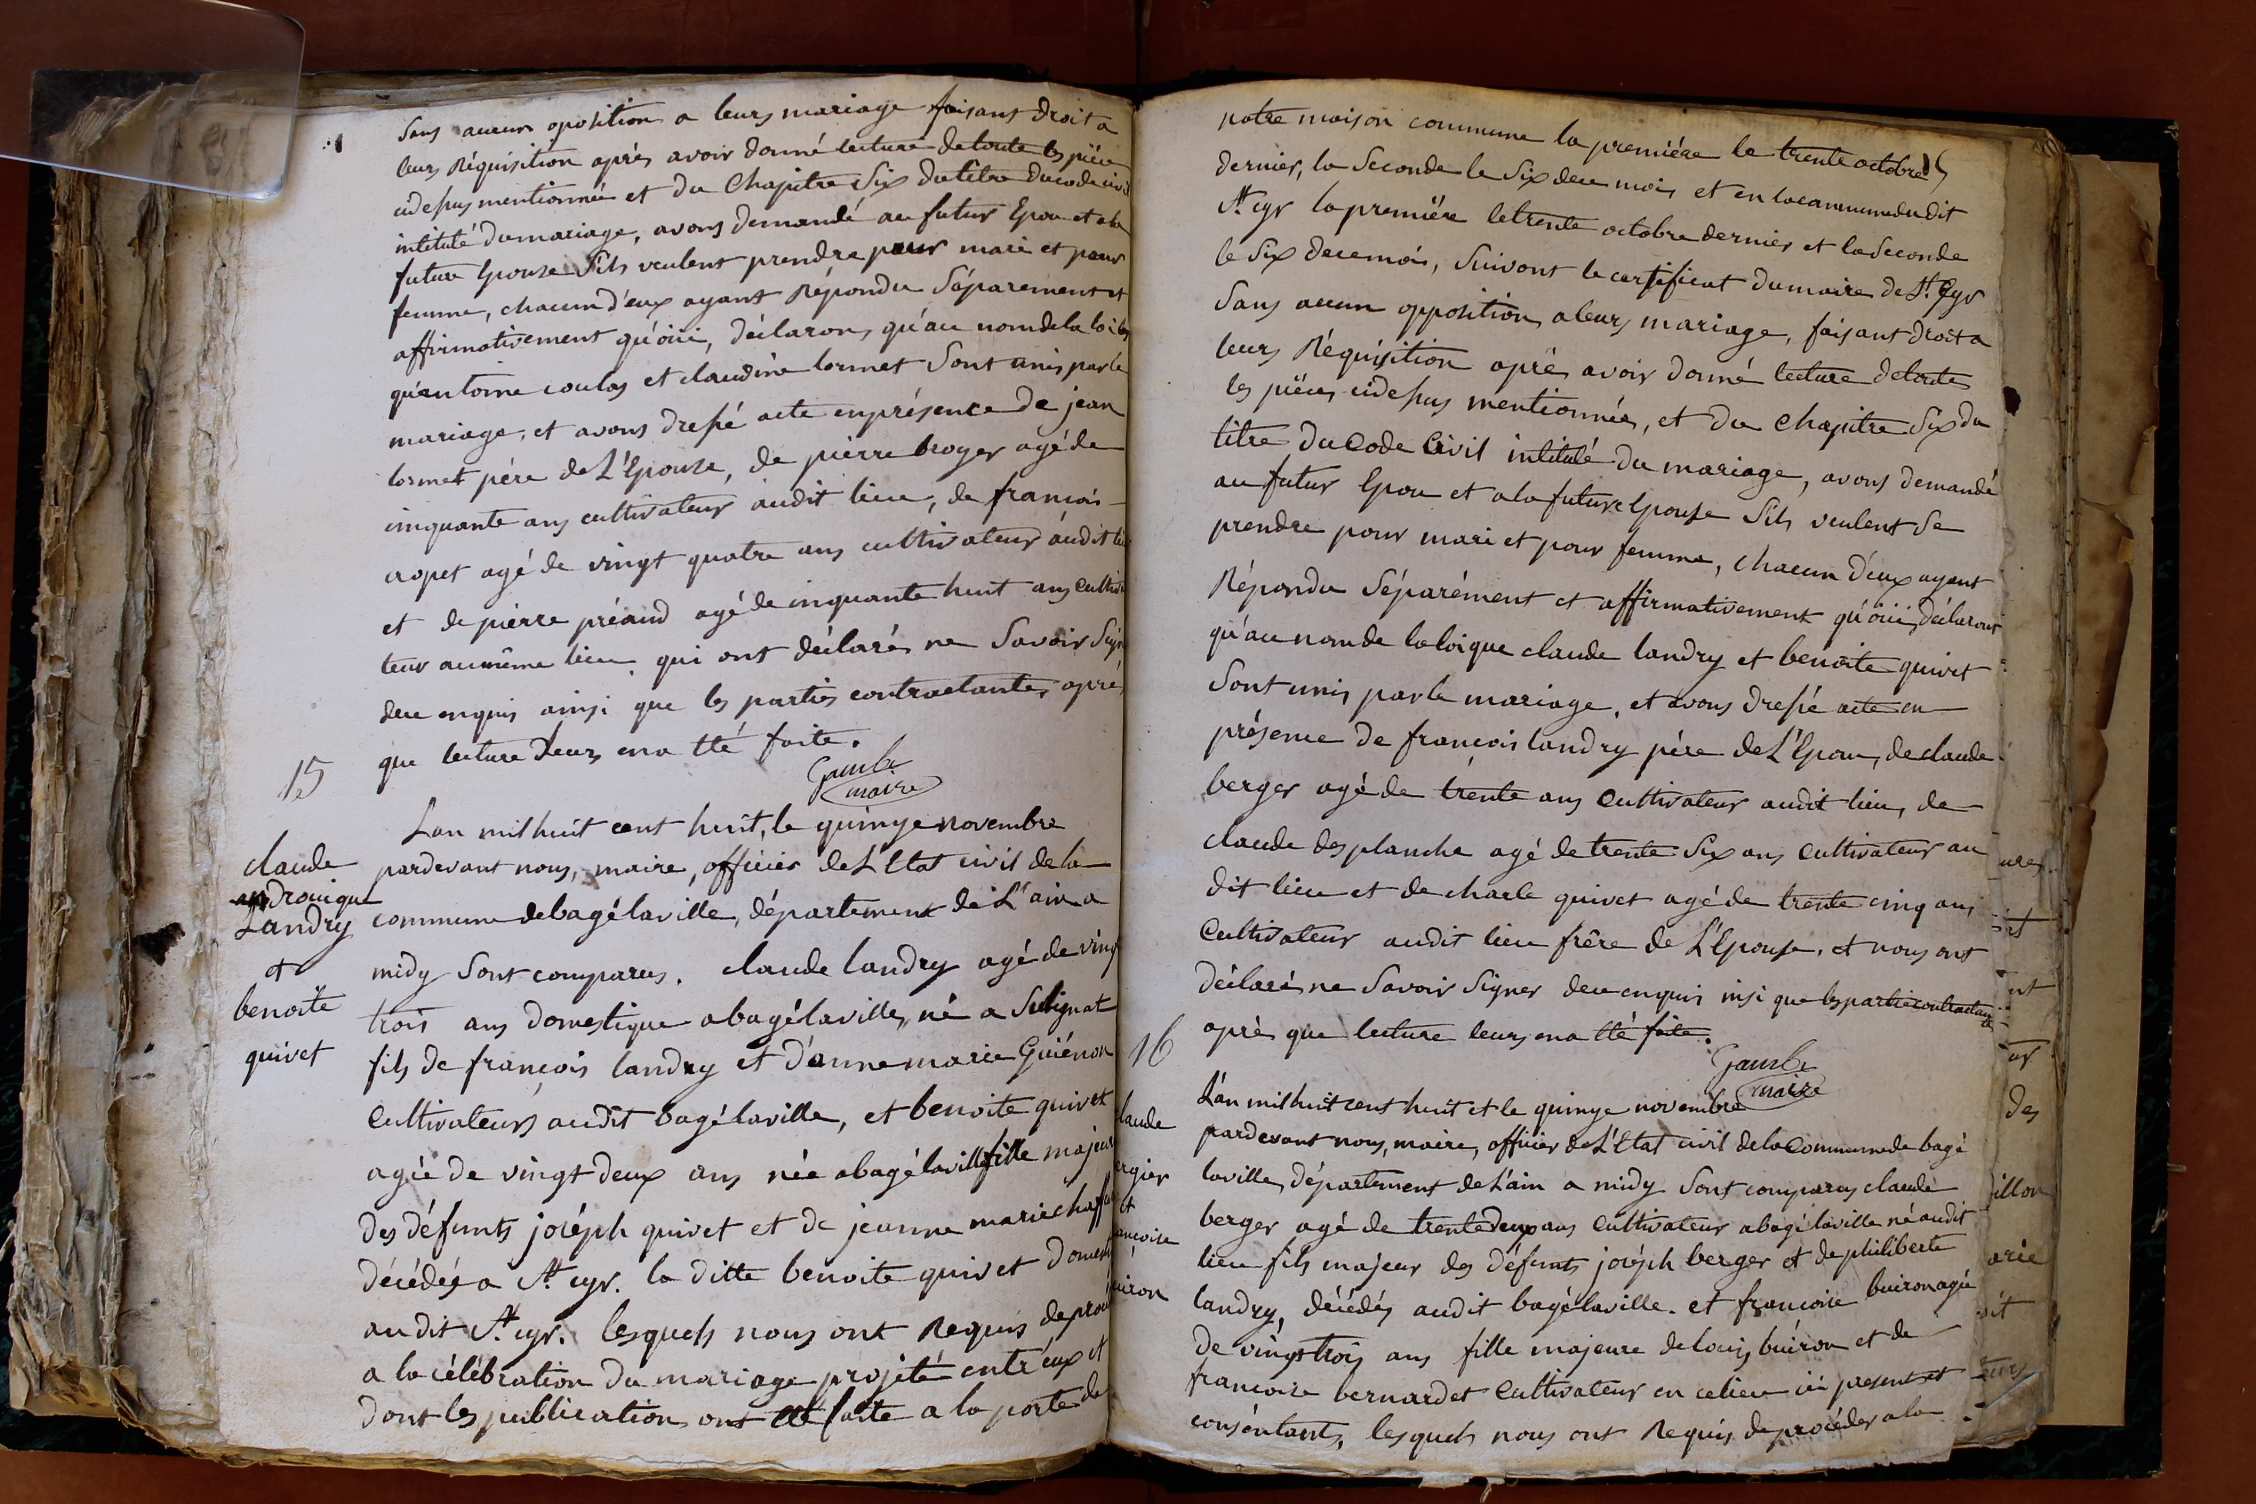 Sans aucun oposition a leurs mariage faisant droit a
leurs Réquisition après avoir donné lecture de toute les piéce
cidessus mentionnée et du Chapitre Six du titre du code civil
intitulé du mariage, avons demandé au futur Epou et a la
future Epouse S'ils veulent prendre pour mari et pour
femme, chacun d'eux ayant Répondu Séparement et
affirmativement qu'óui, déclarons qu'au nom de la loi
qu'antoine coulas et claudine lormet Sont unis par le
mariage, et avons dressé acte en présence de jean
lormet pére de L'Epouse, de pierre broyer agé de
cinquante ans cultivateur audit lieu, de francois
cropet agé de vingt quatre ans cultivateur audit
et de pierre préaud agé de cinquante huit ans Cultiva
teur au même lieu qui ont déclarés ne Savoir Sign
deu enquis ainsi que les parties contractantes après
que lecture leurs en a tté faite.
Gambe
maire
15
claude
andronique
Landry
et
benoite
quivet
Lan mil huit cent huit, le quinze novembre
pardevant nous, maire, officier de L'Etat civil de la
commune de bagé laville, département de L'ain a
midy Sont comparus. claude landry agé de ving
trois ans domestique a bagé laville, né a Sulignat
fils de francois landry et d'anne marie Guiénon
Cultivateurs audit bagé laville, et benoite quivet
agée de vingt deux ans née a bagé laville fille majeur
des défunts joséph quivet et de jeanne marie chaff
décédés a St. cyr. la ditte benoite quivet Domes
audit St. cyr. lesquels nous ont Requis de pro
a la célébration du mariage projeté entr'eux et
dont les publication ont tté faite a la porte de
notre maison commune la premiére le trente octobre
dernier, la Seconde le Six deu mois et en la commune dudit
St. cyr la premiére le trente octobre dernier et la Seconde
le Six deu mois, Suivant le certificat du maire de St. Cyr
Sans aucun opposition a leurs mariage, faisant droit a
leurs Réquisition aprés avoir donné lecture de toute
les piéces cidessus mentionnées, et du chapitre Six du
titre du Code Civil intitulé du mariage, avons demandé
au futur Epou et a la future Epouse S'ils veulent Se
prendre pour mari et pour femme, chacun d'eux ayant
Répondu Séparément et affirmativement qu'óui, déclarons
qu'au nom de la loi que claude landry et benoite quivet
Sont unis par le mariage, et avons dressé acte en
présence de francois landry père de L'Epou, de claude
berger agé de trente ans Cultivateur audit lieu, de
claude desplanche agé de trente Six ans Cultivateur au
dit lieu et de charle quivet agé de trente cinq ans
Cultivateur audit lieu frêre de L'Epouse, et nous ont
déclaré ne Savoir Signer deu enquis insi que les partie contractante
aprè que lecture leurs en a tté faite.
Gambe
maire
16
laude
ergier
et
ancoise
uiron
L'an mil huit cent huit et le quinze novembre
pardevant nous, maire, officier de L'Etat civil de la Commune de bagé
laville, département de L'ain a midy Sont comparus claude
berger agé de trente deux ans Cultivateur a bagé laville né audit
lieu fils majeur des défunts joséph berger et de philiberte
landry, décédés audit bagé laville. et francoise buiron agée
de vingt trois ans fille majeure de louis buiron et de
francoise bernardet Cultivateur en ce lieu ici present et
conséntants, lesquels nous ont Requis de procéder a la
ures
nt
des
illon
arie